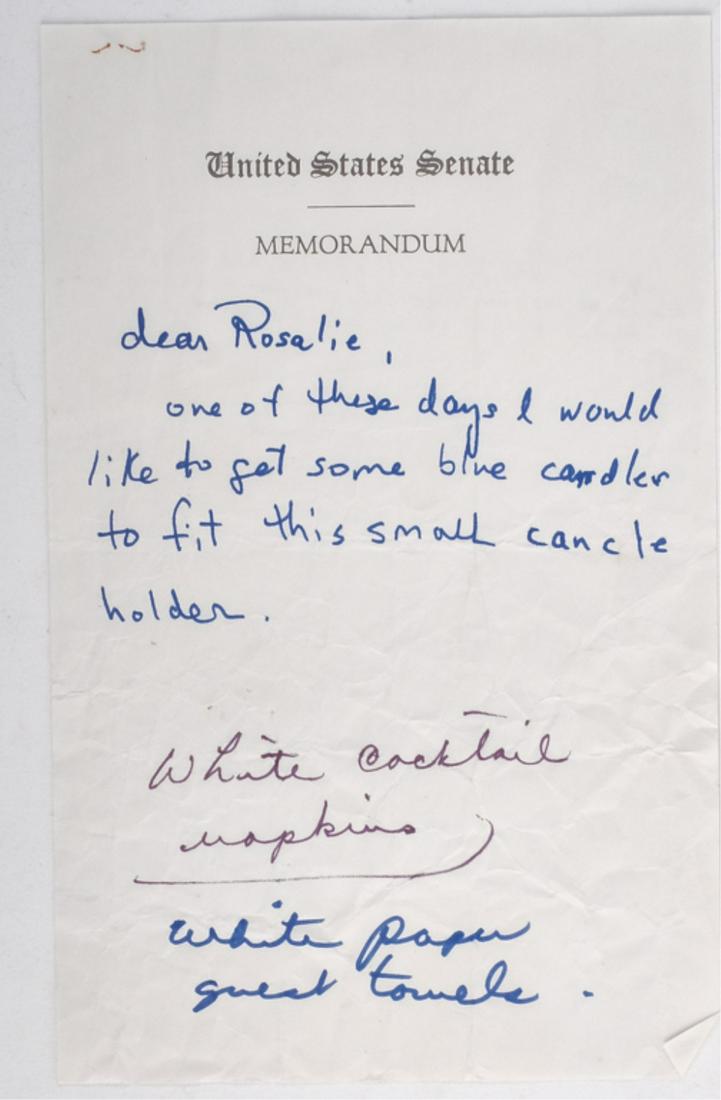 United States Senate
MEMORANDUM
dear Rosalie,
one of these days I would
like to get some blue candles
to fit this small cancle
holder.
White cocktail
napkins
white paper
guest towels.